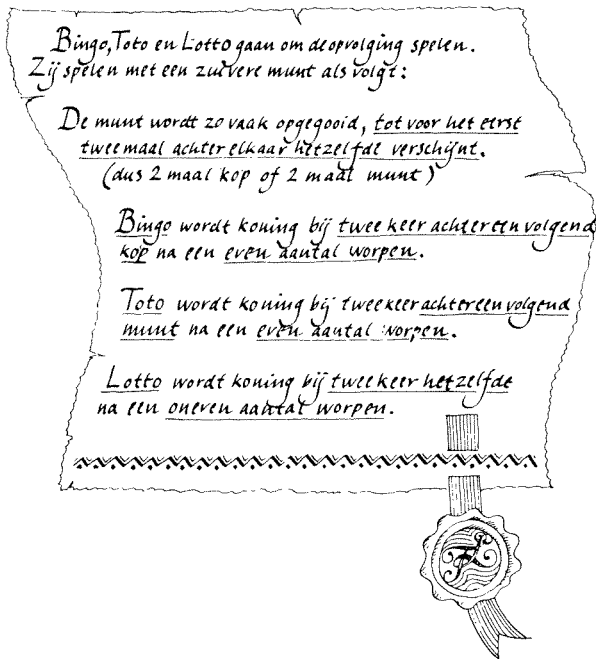 Bingo, Toto en Lotto gaan om de opvolging spelen.
Zij spelen met een zuivere munt als volgt:
De munt wordt zo vaak opgegooid, tot voor het eerst
twee maal achter elkaar hetzelfde verschijnt.
(dus 2 maal kop of 2 maal munt)
Bingo wordt koning bij twee keer achtereenvolgend
kop na een even aantal worpen.
Toto wordt koning bij twee keer achtereenvolgend
munt na een even aantal worpen.
Lotto wordt koning bij twee keer hetzelfde
na een oneven aantal worpen.